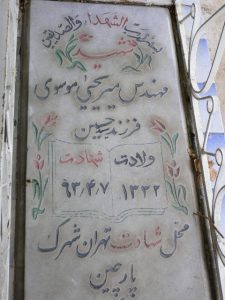 بسم رب الشهداء والصدیقین
شهید
مهندس میر یحیی موسوی
فرزند میر حسین
ولادت شهادت
۱۳۲۲ ۶۳/۴/۷
محل شهادت تهران شهرک
پارچین